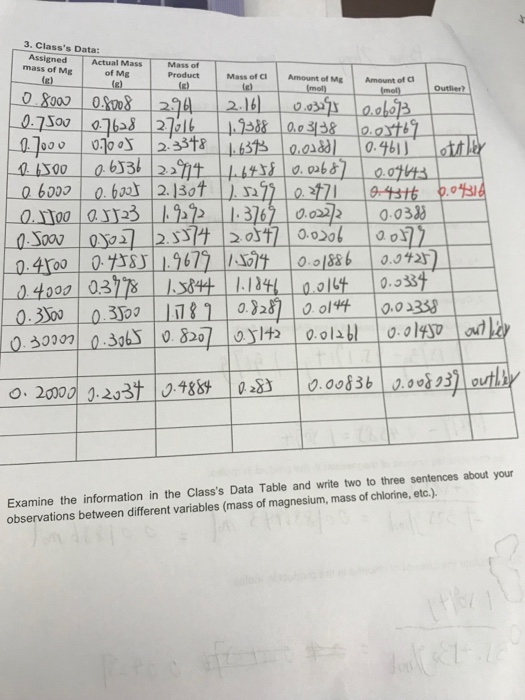 3. Class's Data:
Assigned mass of Mg (g) | Actual Mass of Mg (g) | Mass of Product (g) | Mass of Cl (g) | Amount of Mg (mol) | Amount of Cl (mol) | Outlier?
0.8000 | 0.8008 | 2.961 | 2.161 | 0.03295 | 0.06093
0.7500 | 0.7628 | 2.7016 | 1.9388 | 0.03138 | 0.05469
0.7000 | 0.7005 | 2.3348 | 1.6343 | 0.02881 | 0.4611 | outlier
0.6500 | 0.6536 | 2.2994 | 1.6458 | 0.02687 | 0.04643
0.6000 | 0.6005 | 2.1304 | 1.5299 | 0.2471 | 0.4316 | 0.04316
0.5500 | 0.5523 | 1.9292 | 1.3769 | 0.02272 | 0.0388
0.5000 | 0.5027 | 2.5574 | 2.0547 | 0.0206 | 0.0579
0.4500 | 0.4585 | 1.9679 | 1.5094 | 0.01886 | 0.04257
0.4000 | 0.3998 | 1.5844 | 1.1846 | 0.0164 | 0.0334
0.3500 | 0.3500 | 1.1789 | 0.8289 | 0.0144 | 0.02338
0.30000 | 0.3065 | 0.8207 | 0.5142 | 0.01261 | 0.01450 | outlier
0.20000 | 0.2034 | 0.4884 | 0.285 | 0.00836 | 0.008039 | outlier
Examine the information in the Class's Data Table and write two to three sentences about your
observations between different variables (mass of magnesium, mass of chlorine, etc.).